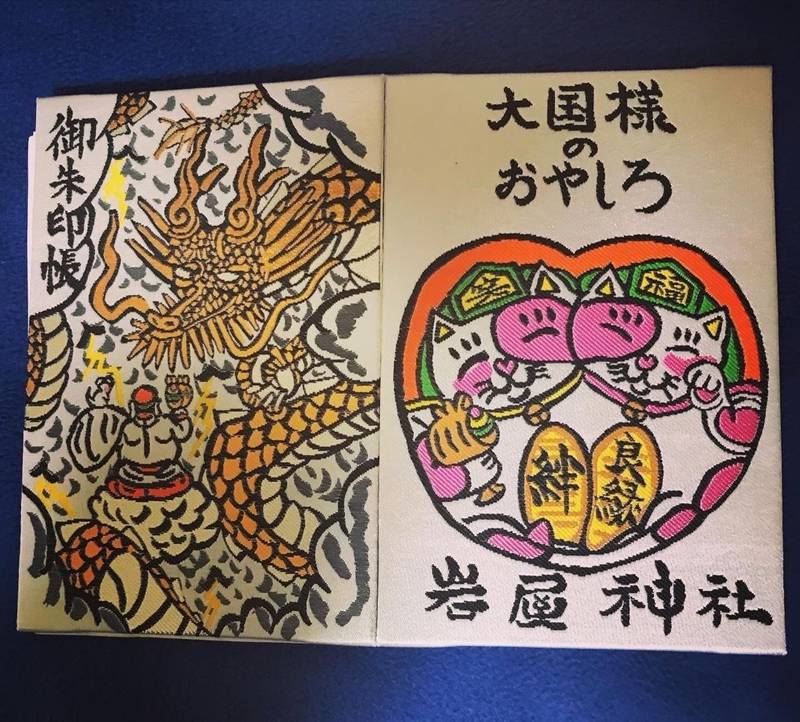 御朱印帳
大国様
の
おやしろ
福
絆
良縁
岩屋神社